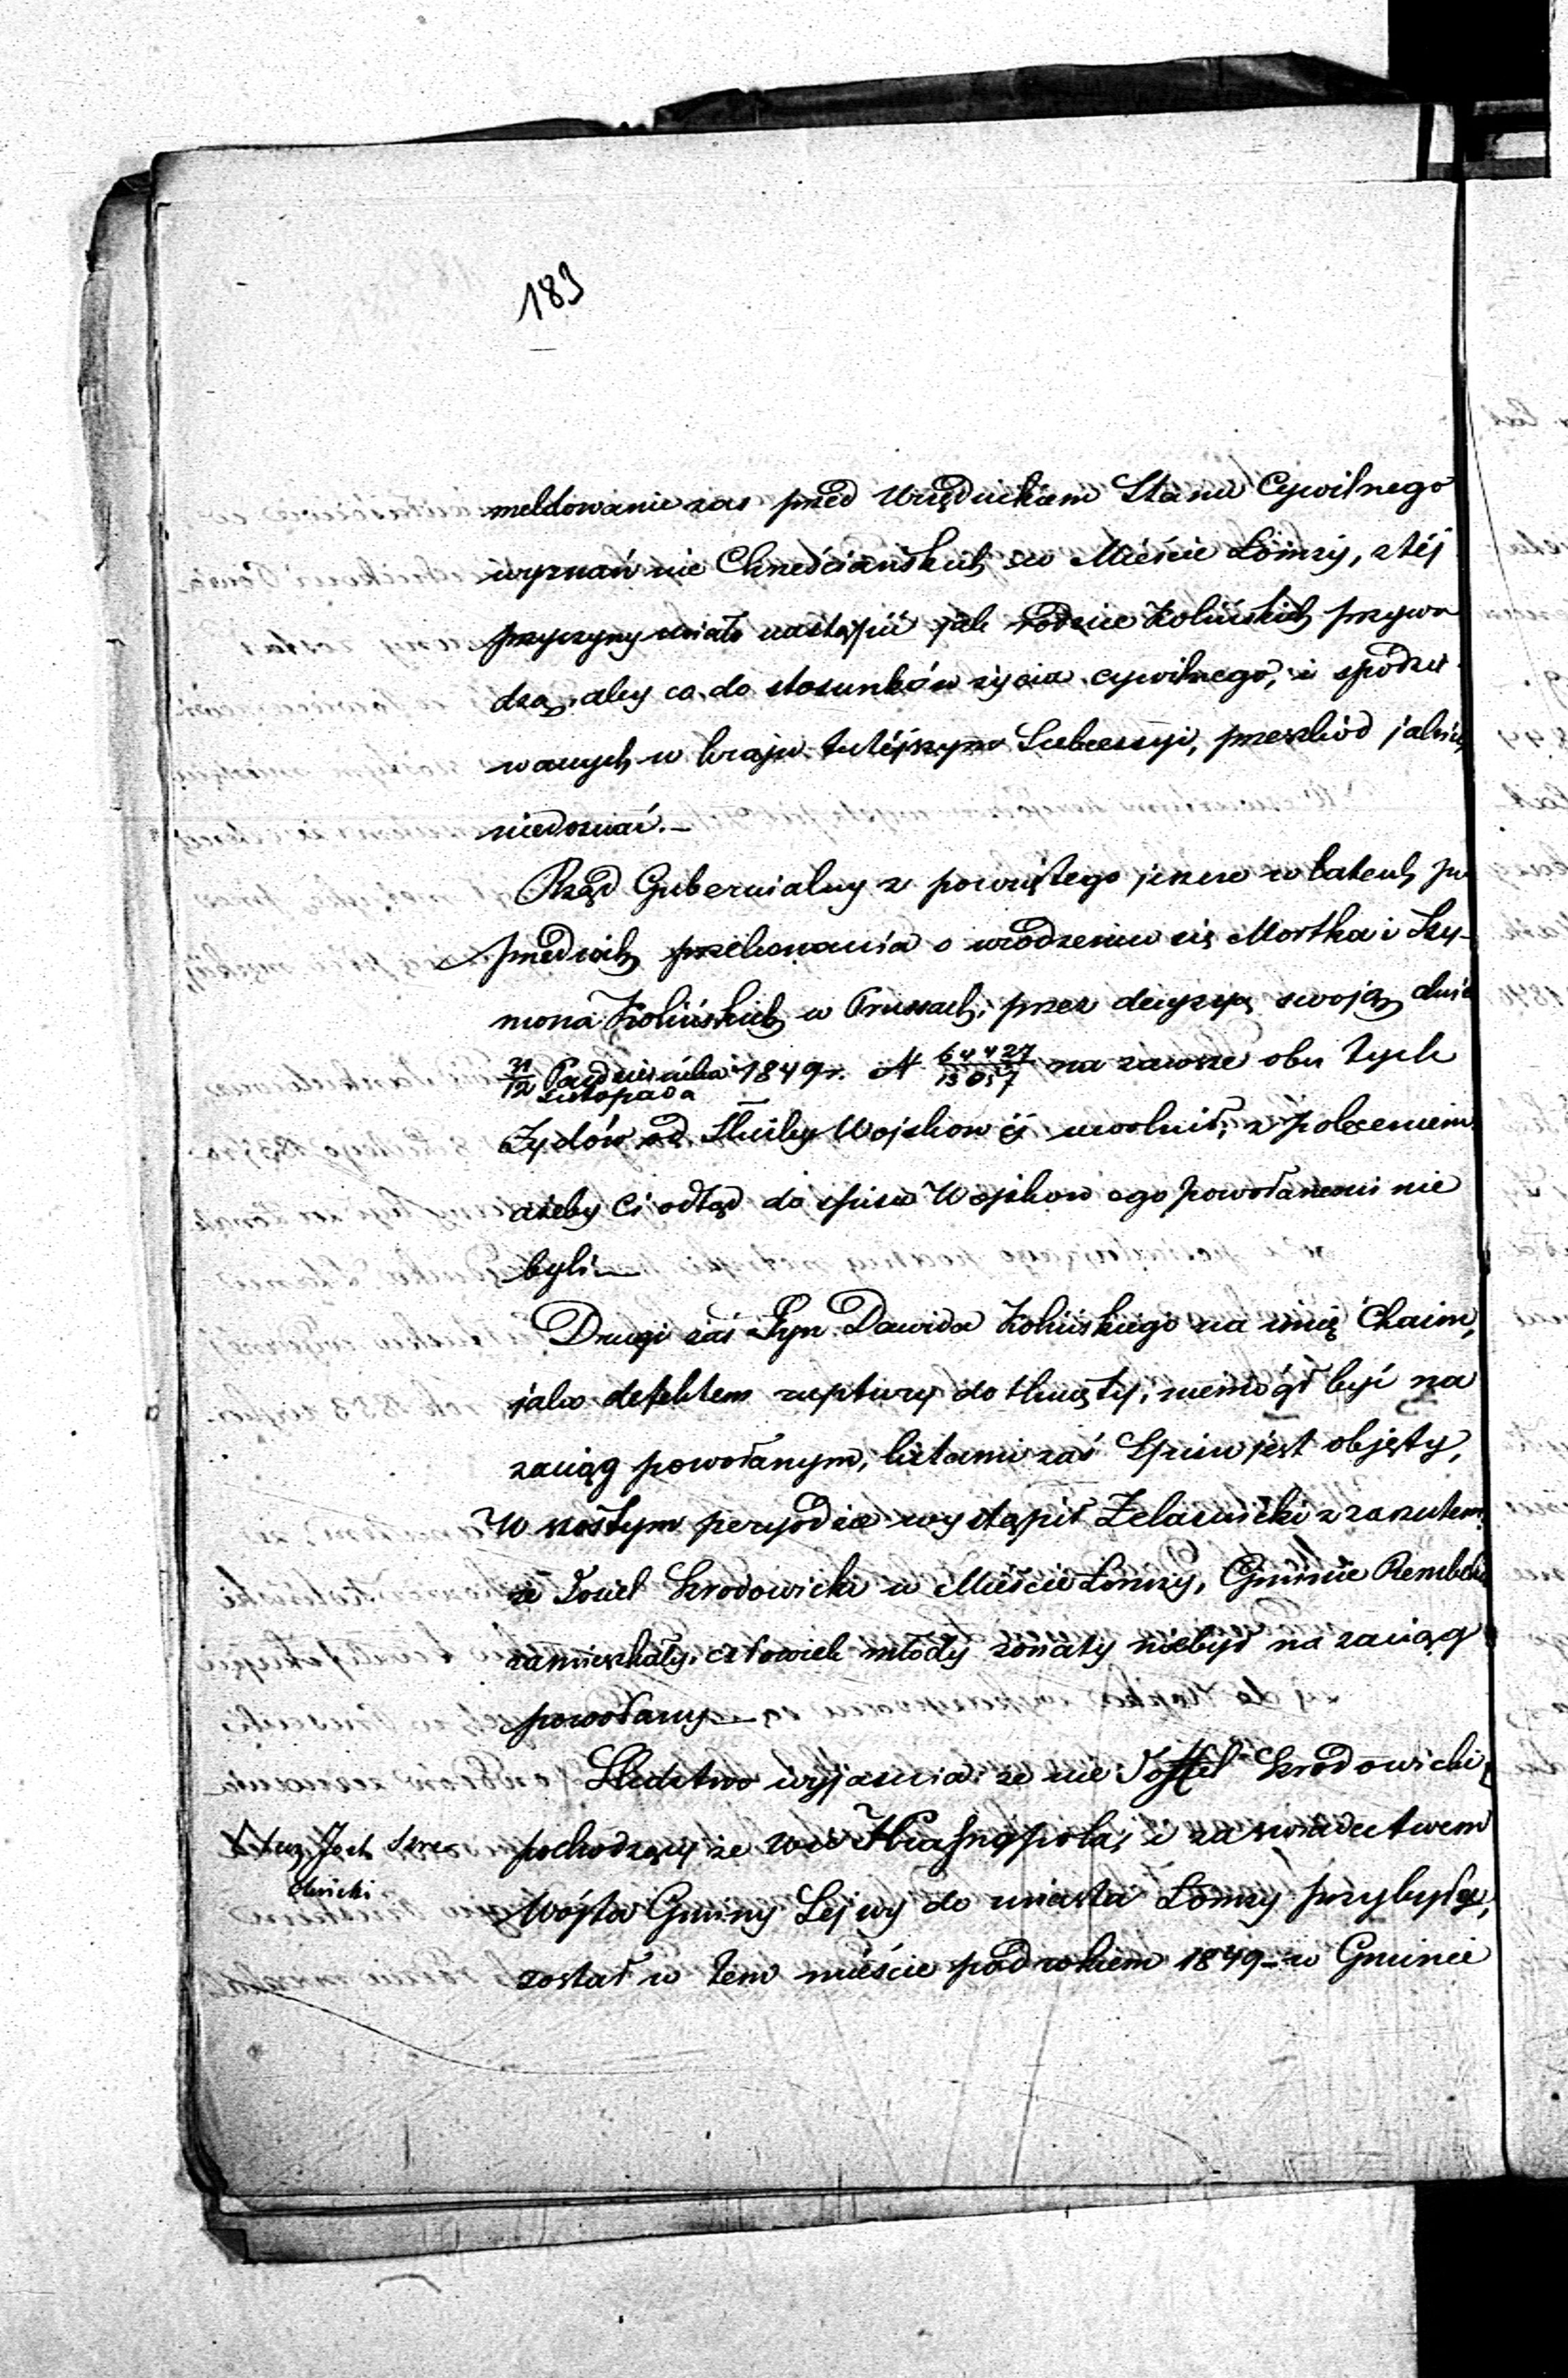 183
meldowanie zas przed Urzędnikiem Stanu Cywilnego
wyznań nie Chrześciańskich w Mieście Łomży, z téj
przyczyny miało nastąpić jak rodzice Kolińskich przywo
dzą, aby co do stosunków życia cywilnego, i spodzie
wanych w kraju tutéjszym Sukcessyi, przeszkód jakich
niedoznać.—
Rząd Gubernialny z powziętego jeszcze w latach po
przednich przekonania o urodzeniu się Mortka i Szy-
mona Kolińskich w Prussach, przez decyzyą swoją dnia
31/12 Października/Listopada 1849 r. N 64427/13057 na zawsze obu tych
Żydów od Służby Wojskowéj uwolnił, z poleceniem
ażeby Ci odtąd do spisu Wojskowego powołanemi nie
byli—
Drugi zaś Syn Dawida Kolińskiego na imię Chaim,
jako defektem ruptury dotknięty, niemógł być na
zaciąg powołanym, listami zaś Spisu jest objęty,
W szóstym peryodzie wystąpił Żelaźnicki z zarzutem
że Josiel Szrodowicki w Mieście Łomży, Gminie
zamieszkały, człowiek młody żonaty niebył na zaciąg
powołany—
Śledztwo wyjaśnia że nie Szrodowicki
pochodzący ze wsi i za świadectwem
Wójta Gminy Lejwy do miasta Łomży przybyły,
został w tem mieście pod rokiem 1849 – w Gminie